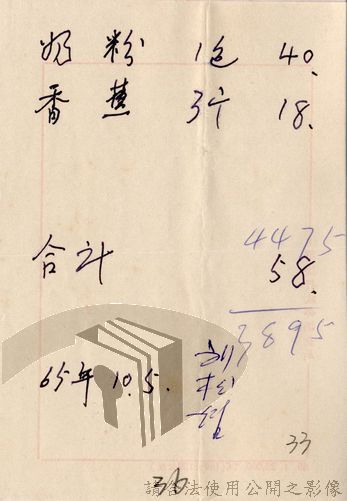 奶粉 1包 40.
香蕉 3斤 18.
4475
合計 58.
3895
65年10.5.
33
36
請合法使用公開之影像